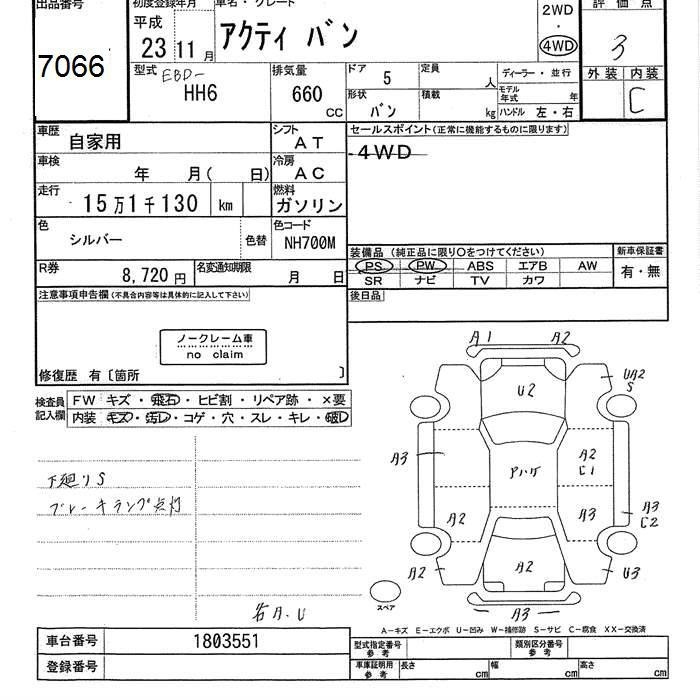 出品番号
7066
初度登録年月
平成
23 11 月
車名・グレード
アクティ バン
2WD
・
4WD
評価点
3
外装 内装
C
型式
EBD-
HH6
排気量
660
cc
ドア 5
形状
バン
定員
人
積載
kg
ディーラー・並行
モデル年式 年
ハンドル 左・右
車歴
自家用
シフト
AT
車検
年 月( 日)
冷房
AC
走行
15万1千130 km
燃料
ガソリン
色
シルバー
色替
色コード
NH700M
R券
8,720 円
名変通知期限
月 日
セールスポイント(正常に機能するものに限ります)
4WD
装備品(純正品に限り〇をつけてください)
PS PW ABS エアB AW
SR ナビ TV カワ
新車保証書
有・無
後日品
注意事項申告欄(不具合内容等は具体的に記入して下さい)
ノークレーム車
no claim
修復歴 有〔箇所 〕
検査員
記入欄
FW キズ・飛石・ヒビ割・リペア跡・×要
内装 キズ・汚レ・コゲ・穴・スレ・キレ・破レ
下廻りS
ブレーキランプ点灯
各A.U
A1 A2
U2
UA2
S
A3
アハゲ
A2
C1
A2
A3
A3
C2
A2
A2
U3
A3
スペア
A-キズ E-エクボ U-凹み W-補修跡 S-サビ C-腐食 XX-交換済
車台番号
1803551
登録番号
型式指定番号
参考
類別区分番号
参考
車庫証明用
参考
長さ cm
幅 cm
高さ cm